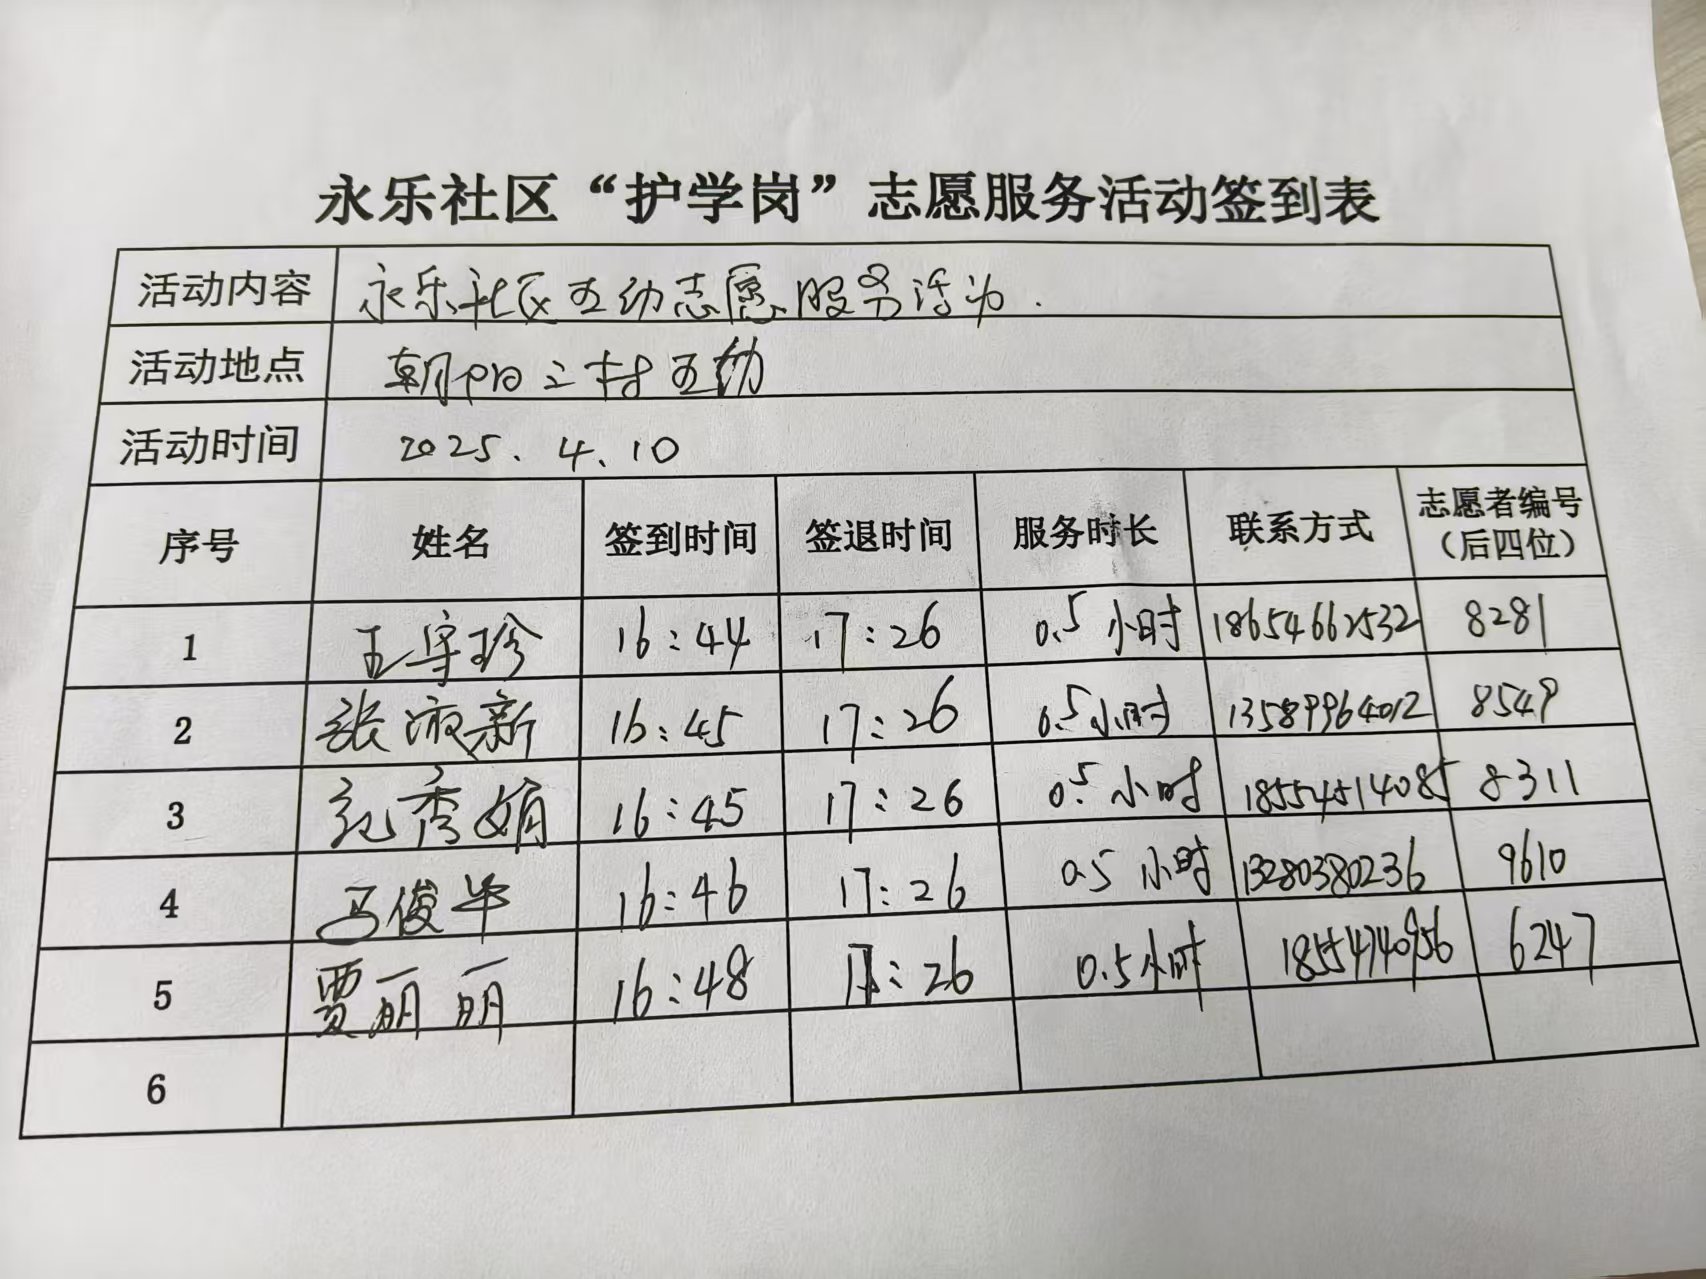 永乐社区“护学岗”志愿服务活动签到表
活动内容 永乐社区互幼志愿服务活动.
活动地点 朝阳之村互幼
活动时间 2025.4.10
序号 姓名 签到时间 签退时间 服务时长 联系方式 志愿者编号（后四位）
1 王守珍 16:44 17:26 0.5小时 18654662532 8281
2 张淑新 16:45 17:26 0.5小时 13589964012 8549
3 纪秀娟 16:45 17:26 0.5小时 18554514085 8311
4 马俊华 16:46 17:26 0.5小时 13280380236 9610
5 贾丽丽 16:48 17:26 0.5小时 18554740956 6247
6